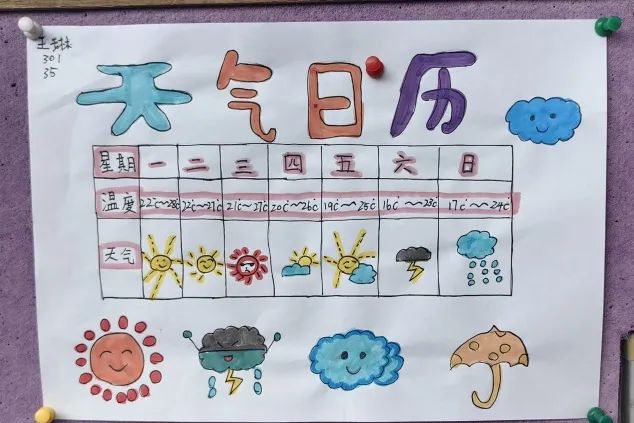 王琳
301
35
天气日历
星期 一 二 三 四 五 六 日
温度 22℃~28℃ 22℃~27℃ 21℃~27℃ 20℃~26℃ 19℃~25℃ 16℃~23℃ 17℃~24℃
天气